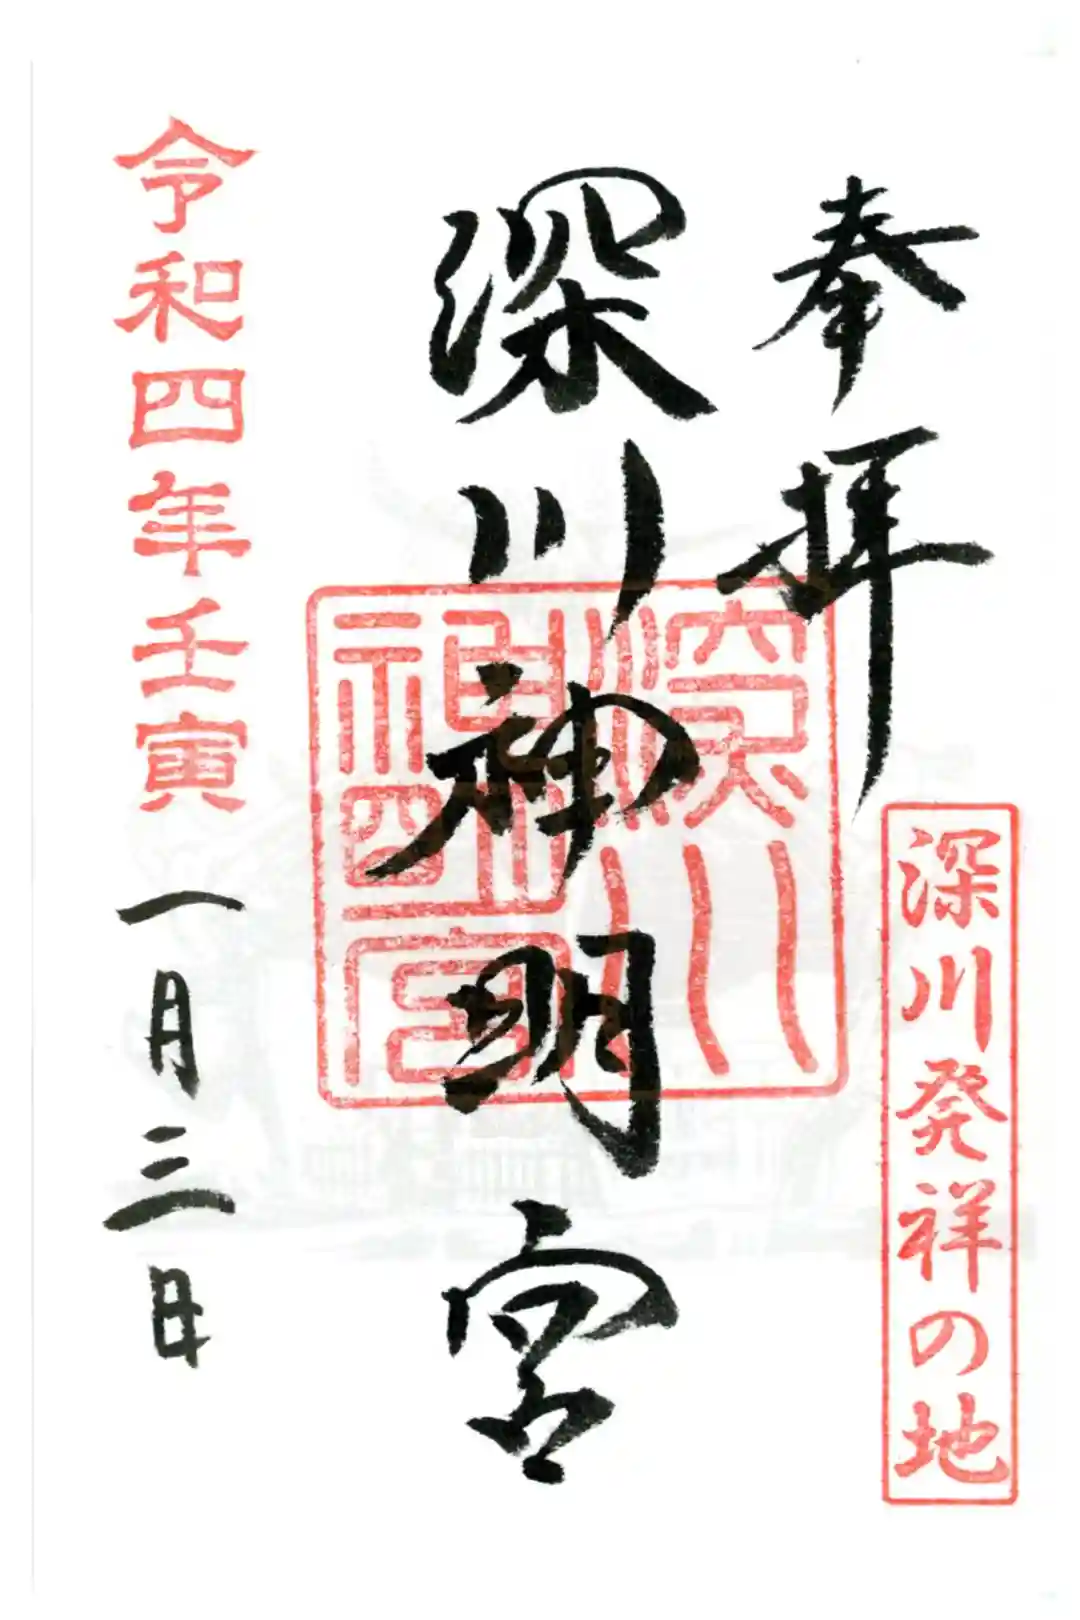 奉拝
深川発祥の地
深川神明宮
深川神明宮
令和四年壬寅
一月三日